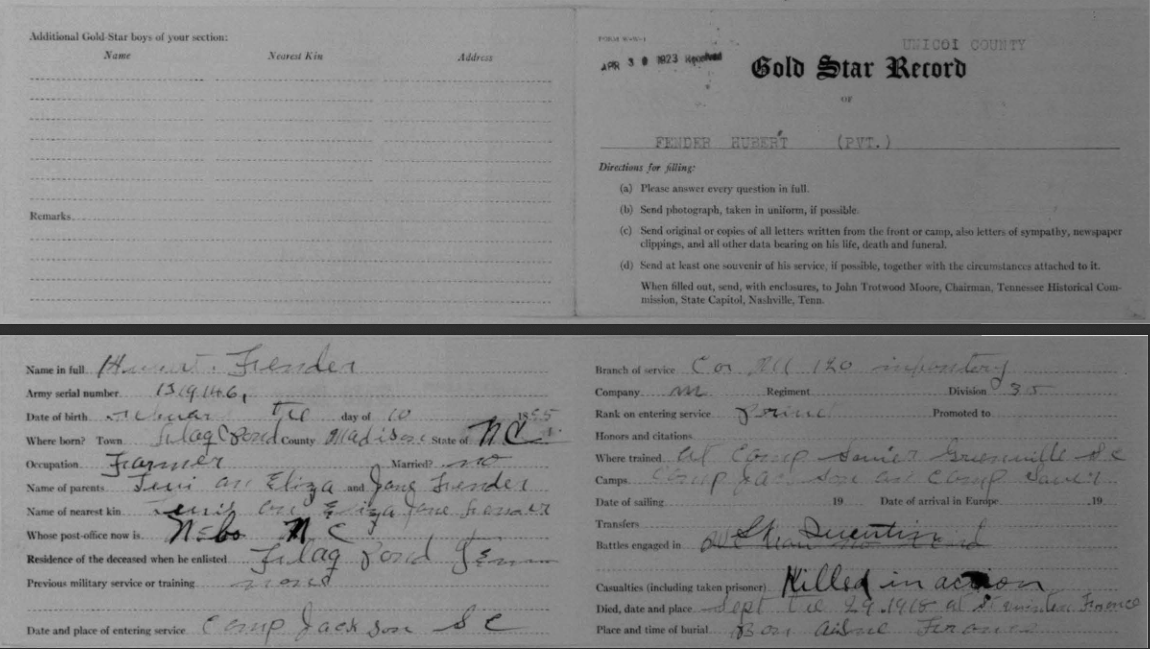 Additional Gold Star boys of your section:
Name Nearest Kin Address
Remarks
UNICOI COUNTY
APR 30 1923 Received
Gold Star Record
OF
FENDER HUBERT (PVT.)
Directions for filling:
(a) Please answer every question in full.
(b) Send photograph, taken in uniform, if possible.
(c) Send original or copies of all letters written from the front or camp, also letters of sympathy, newspaper
clippings, and all other data bearing on his life, death and funeral.
(d) Send at least one souvenir of his service, if possible, together with the circumstances attached to it.
When filled out, send, with enclosures, to John Trotwood Moore, Chairman, Tennessee Historical Com-
mission, State Capitol, Nashville, Tenn.
Name in full Fender
Army serial number 1319146,
Date of birth the day of 10 18
Where born? Town Flag Pond County Madison State of N C
Occupation Farmer Married? no
Name of parents Eliza and Jane Fender
Name of nearest kin Eliza Jane
Whose post-office now is Nebo N C
Residence of the deceased when he enlisted Flag Pond
Previous military service or training none
Date and place of entering service Camp Jackson S C
Branch of service Co 120
Company M Regiment Division 30
Rank on entering service Promoted to
Honors and citations
Where trained at Camp Sevier S C
Camps Camp Jackson Camp Sevier
Date of sailing 19 Date of arrival in Europe 19
Transfers
Battles engaged in St Quentin
Casualties (including taken prisoner) Killed in action
Died, date and place Sept the 29 1918 at France
Place and time of burial Bon France